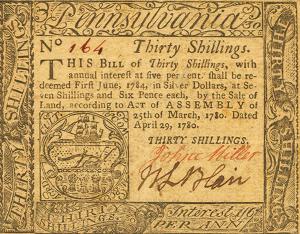 Pennsylvania
No 164 Thirty Shillings.
THIS BILL of Thirty Shillings, with
annual interest at five per cent. shall be re-
deemed First June, 1784, in Silver Dollars, at Se-
ven Shillings and Six Pence each, by the Sale of
Land, according to ACT of ASSEMBLY of
25th of March, 1780. Dated
April 29, 1780.
THIRTY SHILLINGS.
Miller
Wm Blair
Interest
PER ANN
THIRTY SHILLINGS
THIRTY SHILLINGS
THIRTY
SHILLINGS